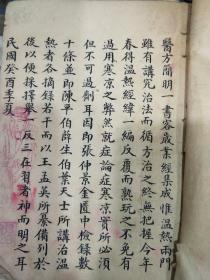 醫方簡明一書容歲素經集成惟溫熱兩門
雖有講究治法而循方治之終無把握今年
春得溫熱經緯一編反覆而熟玩之不免有
過用寒涼之弊然就症論症寒涼實所必須
但不可過劑耳因即張仲景金匱中檢錄數
十條並即陳平伯薛生伯葉天士所講治溫
熱者各摘錄若干而以王孟英所纂備列於
後以便採擇舉一反三在習者神而明之耳
民國癸酉季夏